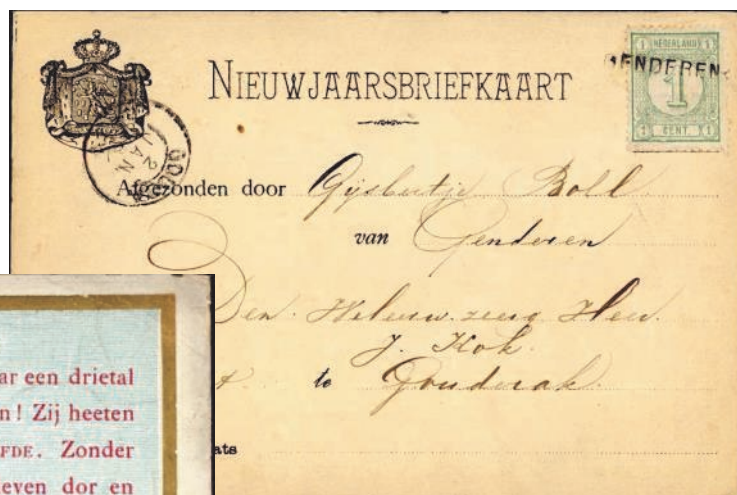 NIEUWJAARSBRIEFKAART
NEDERLAND
1 1
1
1 CENT. 1
GENDEREN
2 JAN
GOUDA
Afgezonden door Gijsbertje Boll
van Genderen
Den Weleerw. zeerg. Heer
J. Kok
te Gouderak.
ats
ar een drietal
n! Zij heeten
FDE. Zonder
even dor en